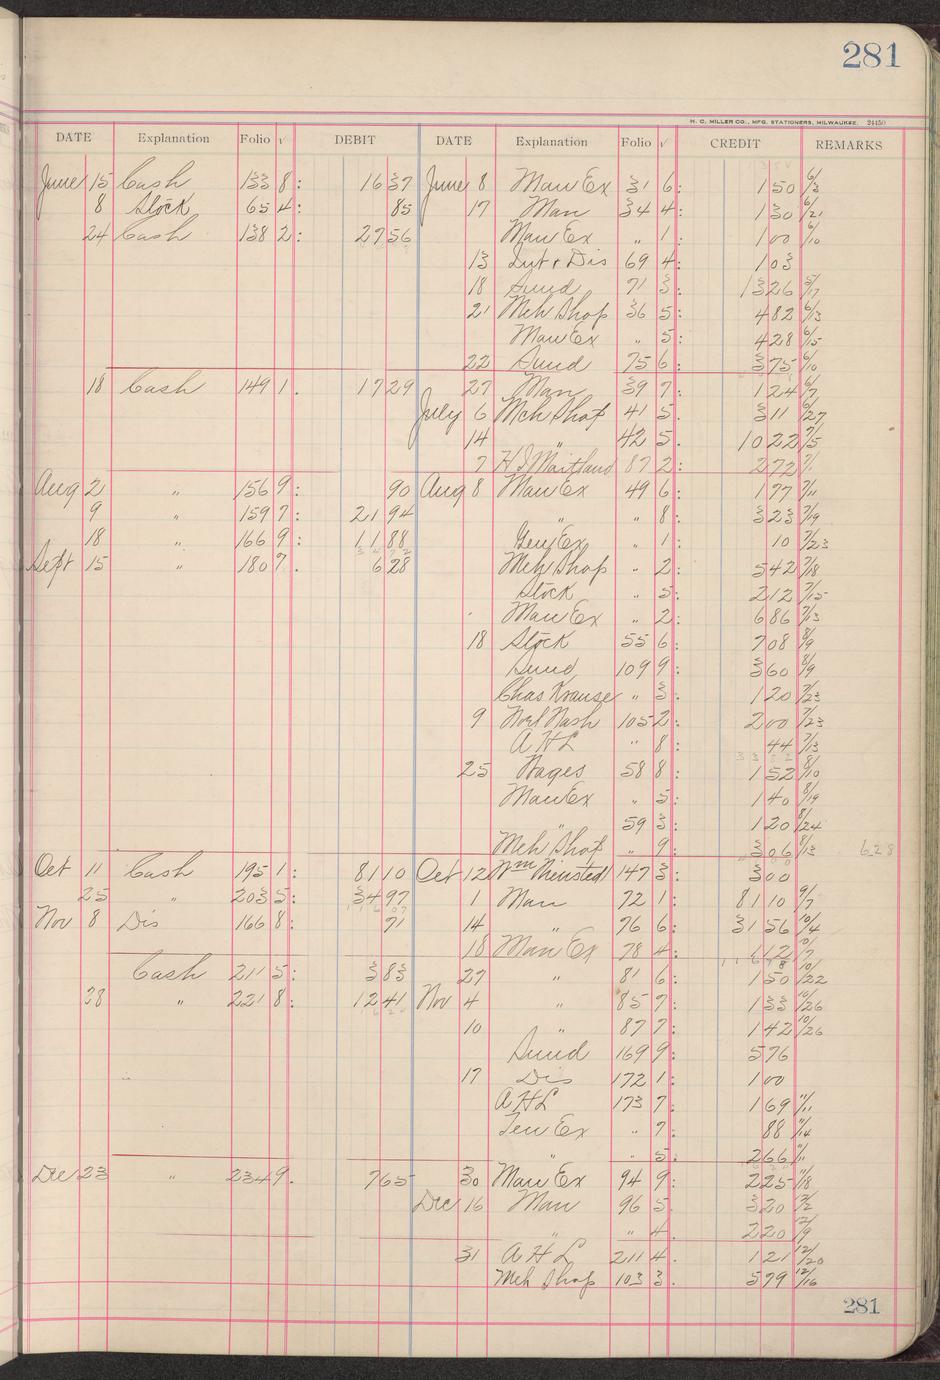 281
H. C. MILLER CO., MFG. STATIONERS, MILWAUKEE. 24450
DATE Explanation Folio √ DEBIT DATE Explanation Folio √ CREDIT REMARKS
June 15 Cash 133 8: 16 37 June 8 Man Ex 31 6: 1 50 6/3
8 Stock 65 4: 85 17 Man 34 4: 1 30 6/21
24 Cash 138 2: 27 56 Man Ex " 1: 1 00 6/10
13 Int + Dis 69 4: 1 03
18 Sund 71 3: 13 26 5/17
21 Mch Shop 36 5: 4 82 6/13
Man Ex " 5: 4 28 6/15
22 Sund 75 6: 3 75 6/10
18 Cash 149 1. 17 29 27 Man 39 7: 1 24 6/7
July 6 Mch Shop 41 5. 3 11 6/27
14 " 42 5. 10 22 7/5
7 H J Maitland 87 2: 2 72
Aug 2 " 156 9: 90 Aug 8 Man Ex 49 6: 1 77 7/11
9 " 159 7: 21 94 " " 8: 3 23 7/19
18 " 166 9: 11 88 Gen Ex " 1: 10 7/23
Sept 15 " 180 7. 6 28 Mch Shop " 2: 5 42 7/18
Stock " 5: 2 12 7/15
Man Ex " 2: 6 86 7/13
18 Stock 55 6: 7 08 8/9
Sund 109 9: 3 60 8/9
Chas Krause " 3: 1 20 7/23
9 Nash 105 2: 2 00 7/23
A H L " 8: 44 7/13
25 Wages 58 8: 1 52 8/10
Man Ex " 5: 1 40 8/19
" 59 3: 1 20 8/24
Mch Shop " 9: 3 06 8/13 6 28
Oct 11 Cash 195 1: 81 10 Oct 12 Wm 147 3: 3 00
25 " 203 5: 34 97 1 Man 72 1: 81 10 9/7
Nov 8 Dis 166 8: 71 14 " 76 6: 31 56 10/4
18 Man Ex 78 4: 1 12 10/7
Cash 211 5: 3 83 27 " 81 6: 1 50 10/22
28 " 221 8: 12 41 Nov 4 " 85 7: 1 33 10/26
10 " 87 7: 1 42 10/26
Sund 169 9: 5 76
17 Dis 172 1: 1 00
A H L 173 7. 1 69 11/11
Gen Ex " 7: 88 11/14
" " 5. 2 66 11/11
Dec 23 " 234 9. 7 65 30 Man Ex 94 9: 2 25 11/18
Dec 16 Man 96 5. 3 20 12/2
" " 4. 2 20 12/9
31 A H L 211 4. 1 21 12/20
Mch Shop 103 3. 5 79 12/16
281